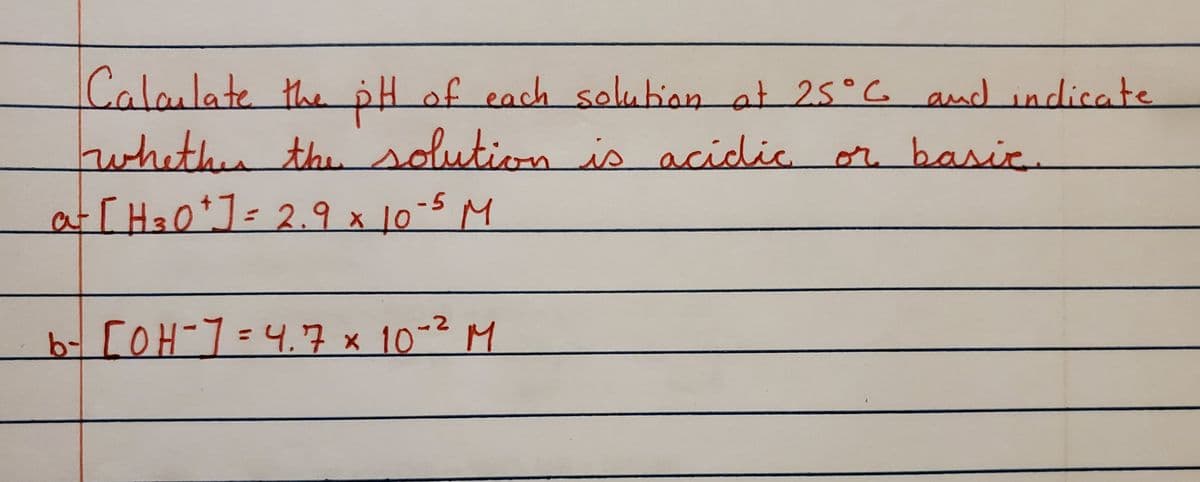 Calculate the pH of each solution at 25°C and indicate
whether the solution is acidic or basic.
a- [H3O⁺] = 2.9 x 10⁻⁵ M
b- [OH⁻] = 4.7 x 10⁻² M